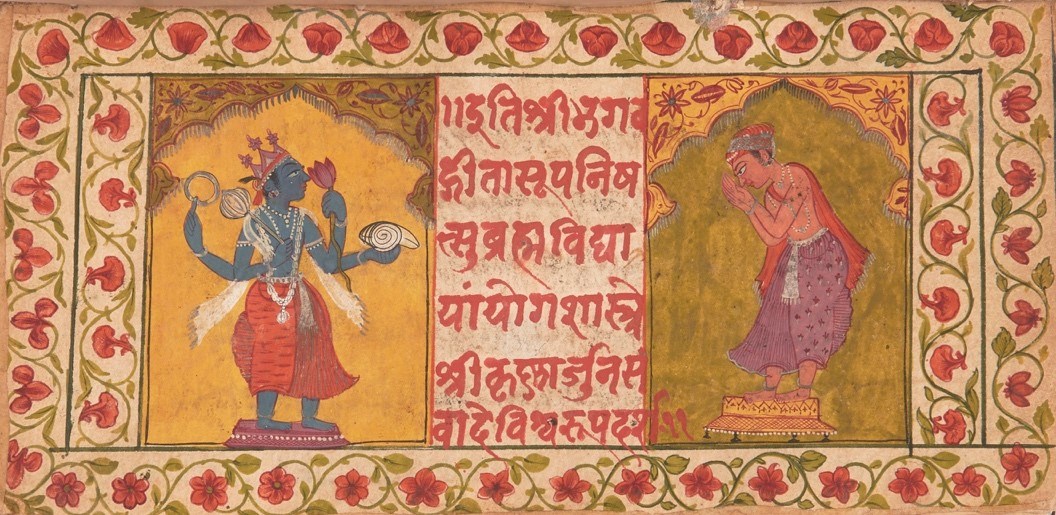 ॥इति श्री भगव
द्गीतासूपनिष
त्सु ब्रह्मविद्या
यां योगशास्त्रे
श्रीकृष्णार्जुनसं
वादे विश्वरूपदर्शन